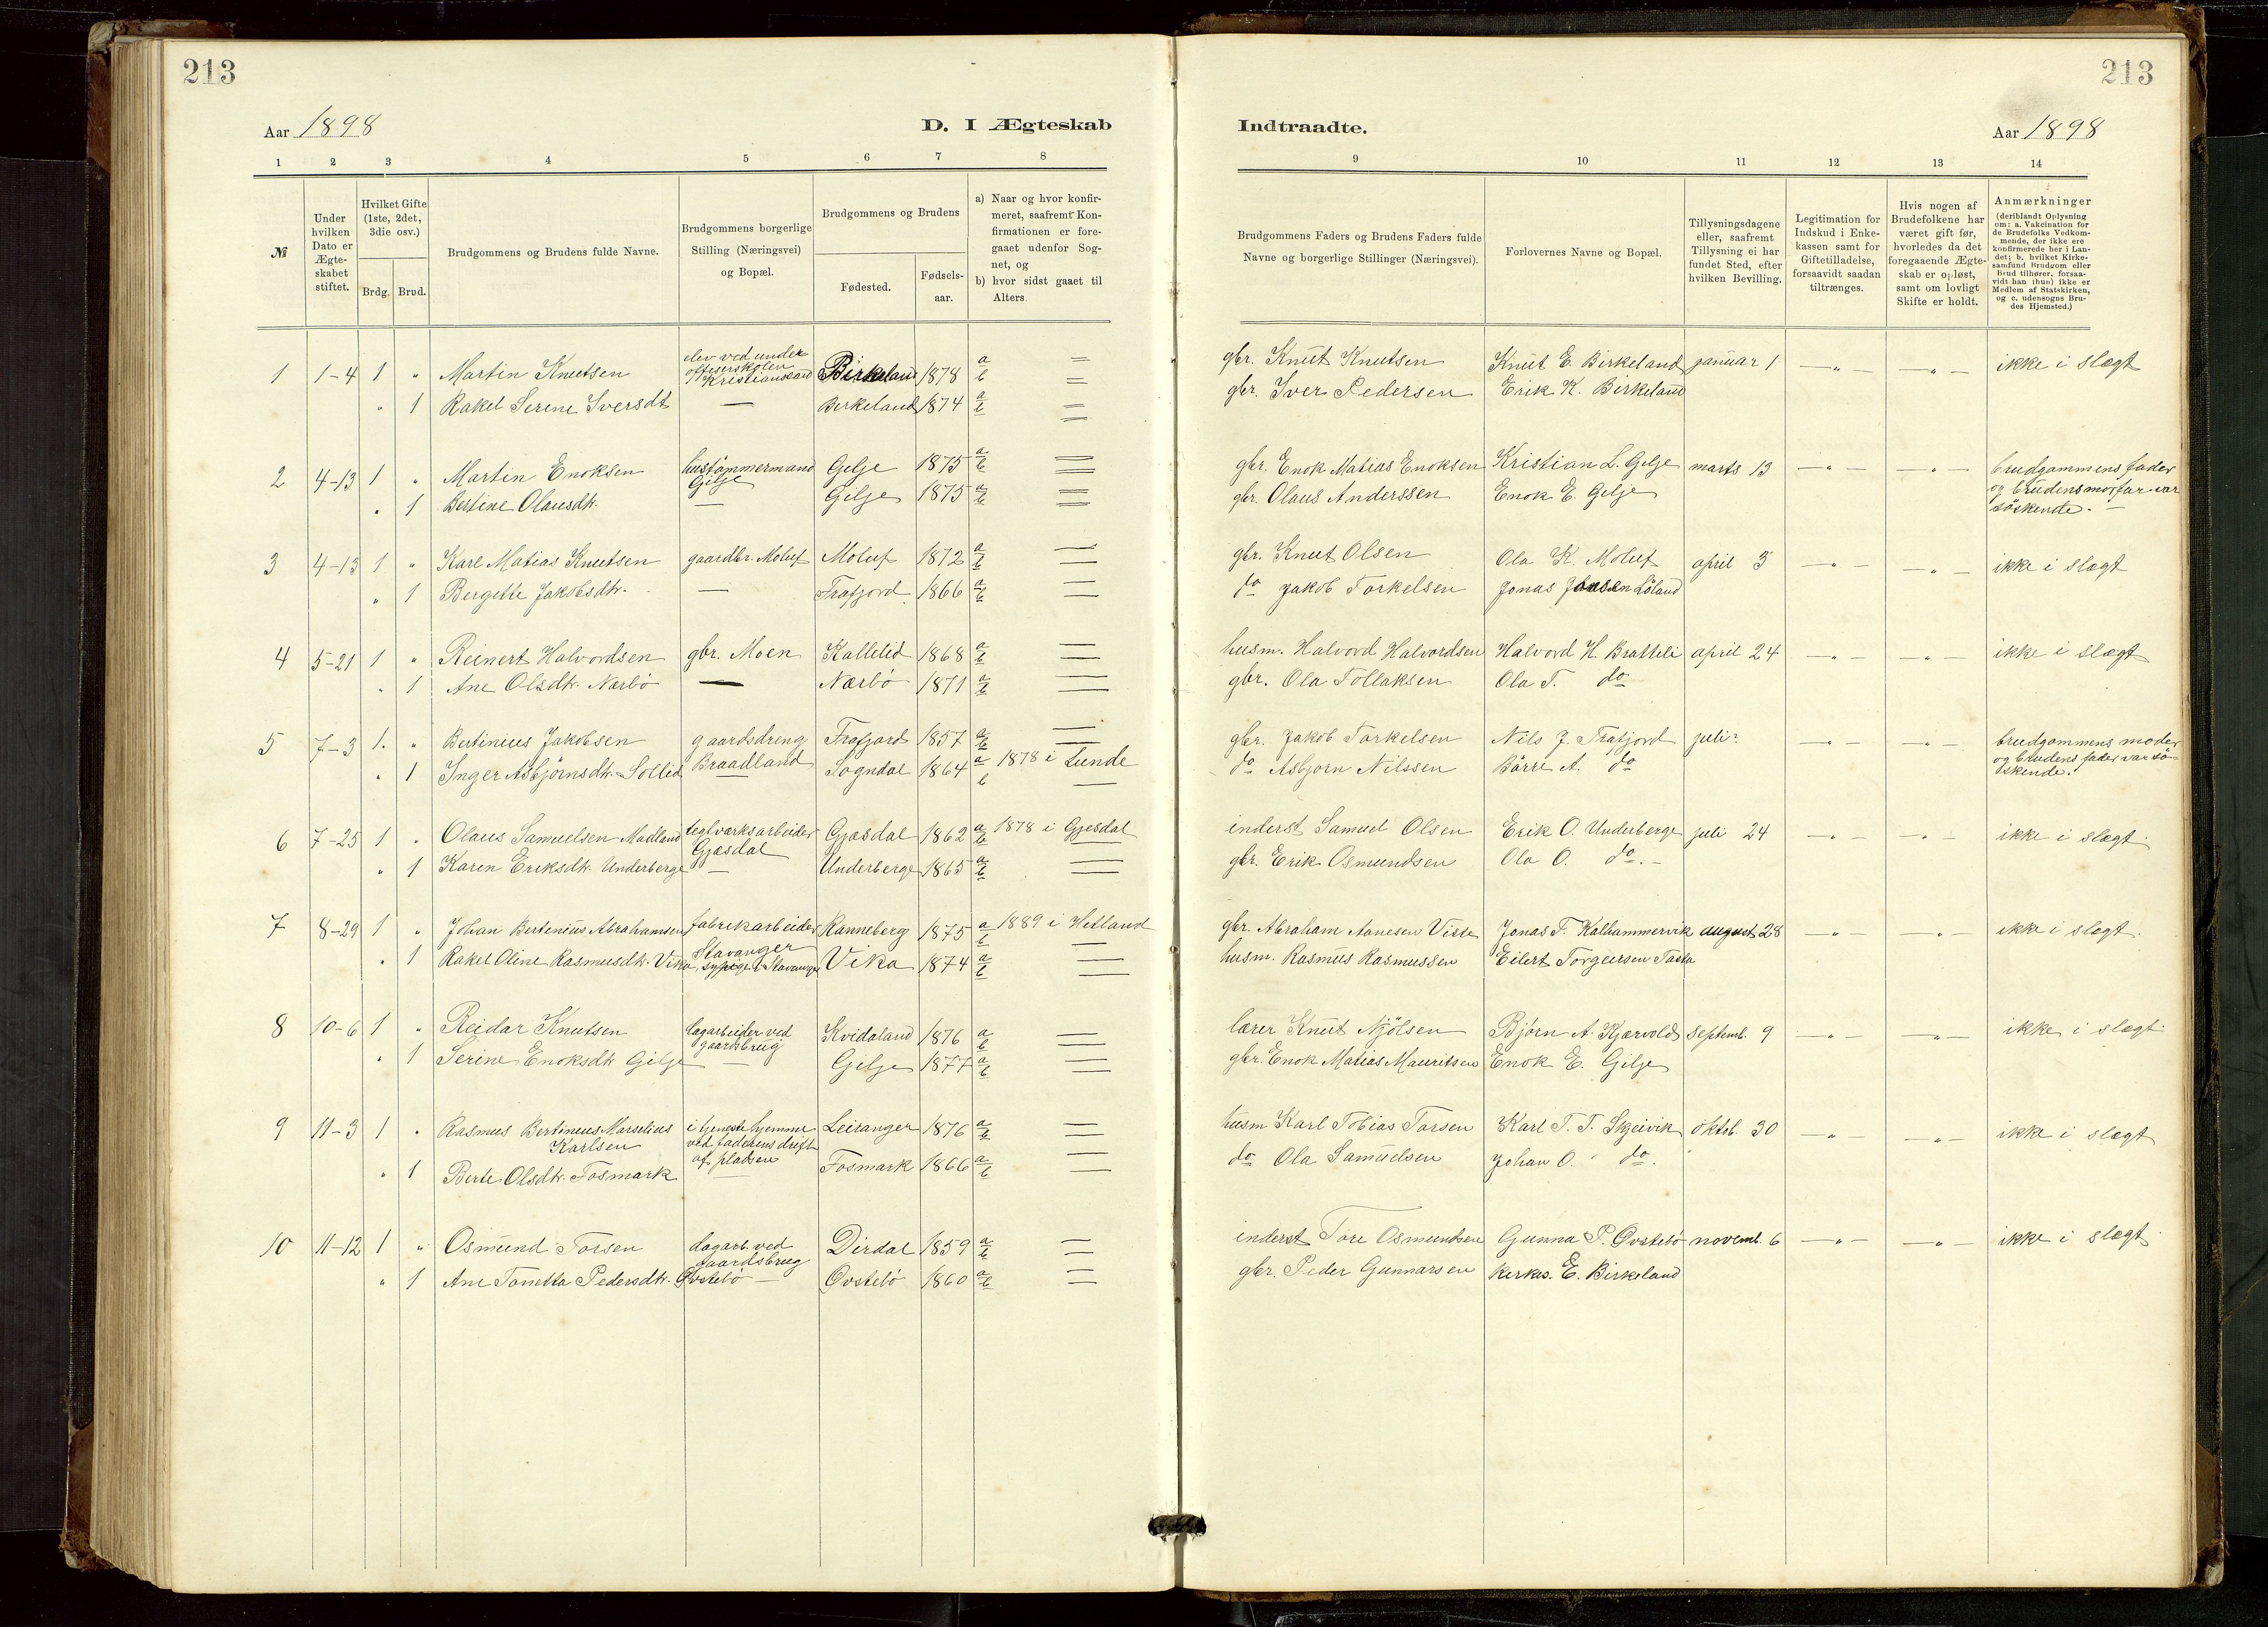 213
Aar 1898
D. I Ægteskab
1 2 3 4 5 6 7 8
№
Under hvilken Dato er Ægteskabet stiftet.
Hvilket Gifte (1ste, 2det, 3die osv.)
Brdg. Brud.
Brudgommens og Brudens fulde Navne.
Brudgommens borgerlige Stilling (Næringsvei) og Bopæl.
Brudgommens og Brudens
Fødested.
Fødsels-aar.
a) Naar og hvor konfir-
meret, saafremt Kon-
firmationen er fore-
gaaet udenfor Sog-
net, og
b) hvor sidst gaaet til
Alters.
1 1-4 1 " Martin Knutsen elev ved under officerskolen Kristianssand Birkeland 1878 a b
" 1 Rakel Serine Iversdt — Birkeland 1874 a b
2 4-13 1 " Martin Enoksen hustømmermand Gilje Gilje 1875 a b
" 1 Bertine Olausdtr. — Gilje 1875 a b
3 4-13 1 " Karl Matias Knutsen gaardbr. Moluf Moluf 1872 a b
" 1 Bergette Jakobsdtr. — Frafjord 1866 a b
4 5-21 1 " Reinert Halvordsen gbr. Moen Kallelid 1868 a b
" 1 Ane Olsdtr. Nærbø — Nærbø 1871 a b
5 7-3 1. " Bertinius Jakobsen gaardsdreng Braadland Frafjord 1857 a b
" 1 Inger Asbjørnsdtr. Sollid — Sogndal 1864 a 1878 i Lunde b
6 7-25 1 " Olaus Samuelsen Madland teglværksarbeider Gjæsdal Gjæsdal 1862 a b 1878 i Gjesdal
" 1 Karen Eriksdtr. Underberge — Underberge 1865 a b
7 8-29 1 " Johan Bertenius Abrahamsen fabrikarbeider Stavanger Ranneberg 1875 a b 1889 i Hetland
" 1 Rakel Oline Rasmusdtr. Vika sypige i Stavanger Vika 1874 a b
8 10-6 1 " Reidar Knutsen dagarbeider ved gaardsbrug Kvidaland 1876 a b
" 1 Serine Enoksdtr Gilje — Gilje 1877 a b
9 11-3 1 " Rasmus Bertinius Marselius Karlsen i tjeneste hjemme ved faderens drift af pladsen Leiranger 1876 a b
" 1 Berte Olsdtr. Fosmark — Fosmark 1866 a b
10 11-12 1 " Osmund Torsen dagarb. ved gaardsbrug Dirdal 1859 a b
" 1 Ane Tonetta Pedersdtr. Øvstebø — Øvstebø 1860 a b
213
Indtraadte.
Aar 1898
9 10 11 12 13 14
Brudgommens Faders og Brudens Faders fulde
Navne og borgerlige Stillinger (Næringsvei).
Forlovernes Navne og Bopæl.
Tillysningsdagene
eller, saafremt
Tillysning ei har
fundet Sted, efter
hvilken Bevilling.
Legitimation for
Indskud i Enke-
kassen samt for
Giftetilladelse,
forsaavidt saadan
tiltrænges.
Hvis nogen af
Brudefolkene har
været gift før,
hvorledes da det
foregaaende Ægte-
skab er opløst,
samt om lovligt
Skifte er holdt.
Anmærkninger
(deriblandt Oplysning
om: a. Vakcination for
de Brudefolks Vedkom-
mende, der ikke ere
konfirmerede her i Lan-
det; b. hvilket Kirke-
samfund Brudgom eller
Brud tilhører, forsaa-
vidt han (hun) ikke er
Medlem af Statskirken,
og c. udensogns Bru-
des Hjemsted.)
gbr. Knut Knutsen Knut E. Birkeland januar 1 —"— —"— ikke i slægt
gbr. Iver Pedersen Erik K. Birkeland
gbr. Enok Matias Enoksen Kristian L. Gilje marts 13 —"— —"— brudgommens fader
gbr. Olaus Anderssen Enok E. Gilje og brudens morfar var
søskende.
gbr. Knut Olsen Ola K. Moluf april 3 —"— —"— ikke i slægt
do Jakob Torkelsen Jonas Løland
husm. Halvord Halvordsen Halvord H. Bratteli april 24 —"— —"— ikke i slægt
gbr. Ola Tollaksen Ola T. do
gbr. Jakob Torkelsen Nils J. Frafjord juli —"— —"— brudgommens moder
do Asbjørn Nilssen Børre A. do og brudens fader var sø-
skende.
inderst Samuel Olsen Erik O. Underberge juli 24 —"— —"— ikke i slægt
gbr. Erik Osmundsen Ola O. do.
gbr. Abraham Aanesen Visse Jonas T. Kalhammervik august 28 —"— —"— ikke i slægt.
husm. Rasmus Rasmussen Eilert Torgersen Tasta
lærer Knut Njølsen Bjørn A. Kjærvold septemb. 9 —"— —"— ikke i slægt.
gbr. Enok Matias Mauritsen Enok E. Gilje
husm Karl Tobias Torsen Karl T. T. Skjeivik oktob. 30 —"— —"— ikke i slægt
do Ola Samuelsen Johan O. do.
inderst Tore Osmundsen Gunna P. Øvstebø novemb. 6 —"— —"— ikke i slægt
gbr. Peder Gunnarsen kirkes. E. Birkeland